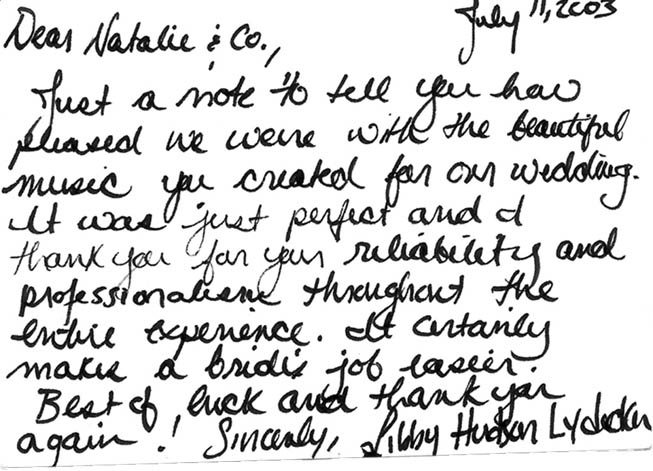 July 11, 2003
Dear Natalie & Co.,
Just a note to tell you how
pleased we were with the beautiful
music you created for our wedding.
It was just perfect and I
thank you for your reliability and
professionalism throughout the
entire experience. It certainly
makes a bride's job easier.
Best of luck and thank you
again! Sincerely, Libby Hudson Lydecker